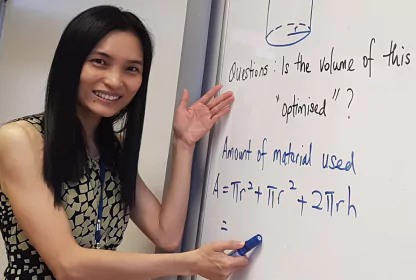 r
Questions: Is the volume of this
"optimised"?
Amount of material used
A = πr² + πr² + 2πrh
=